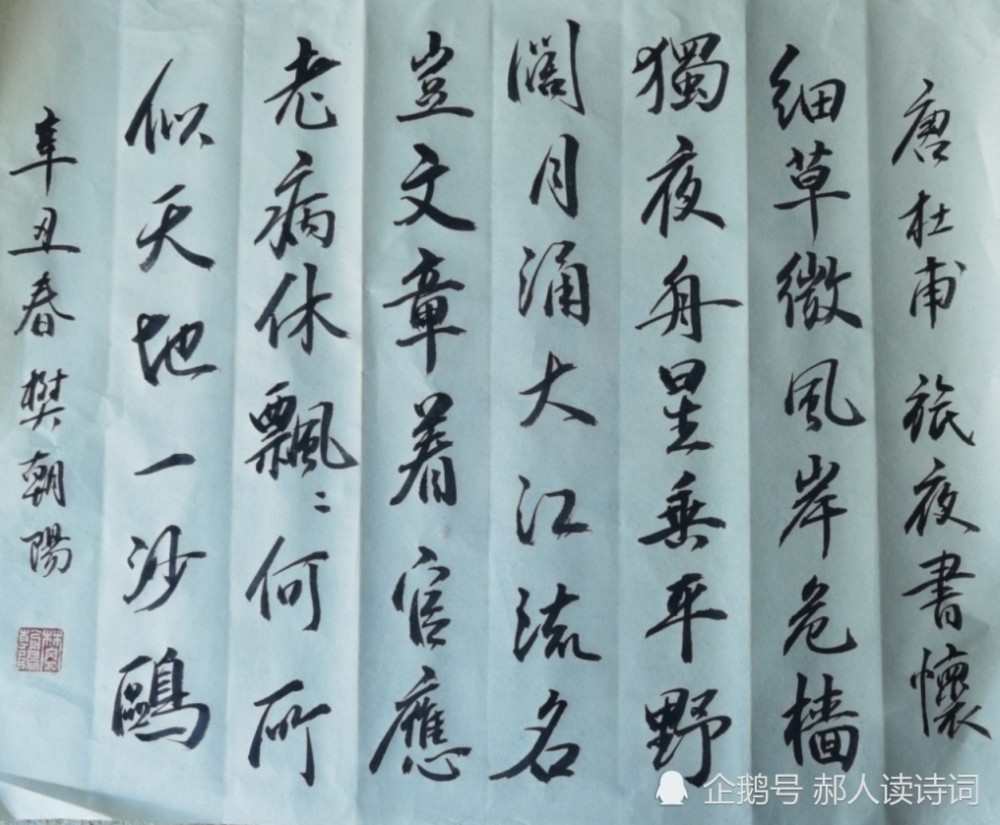 唐杜甫 旅夜書懷
細草微風岸危檣
獨夜舟星垂平野
闊月涌大江流名
豈文章着官應
老病休飄〻何所
似天地一沙鷗
辛丑春樊朝陽
企鹅号 郝人读诗词